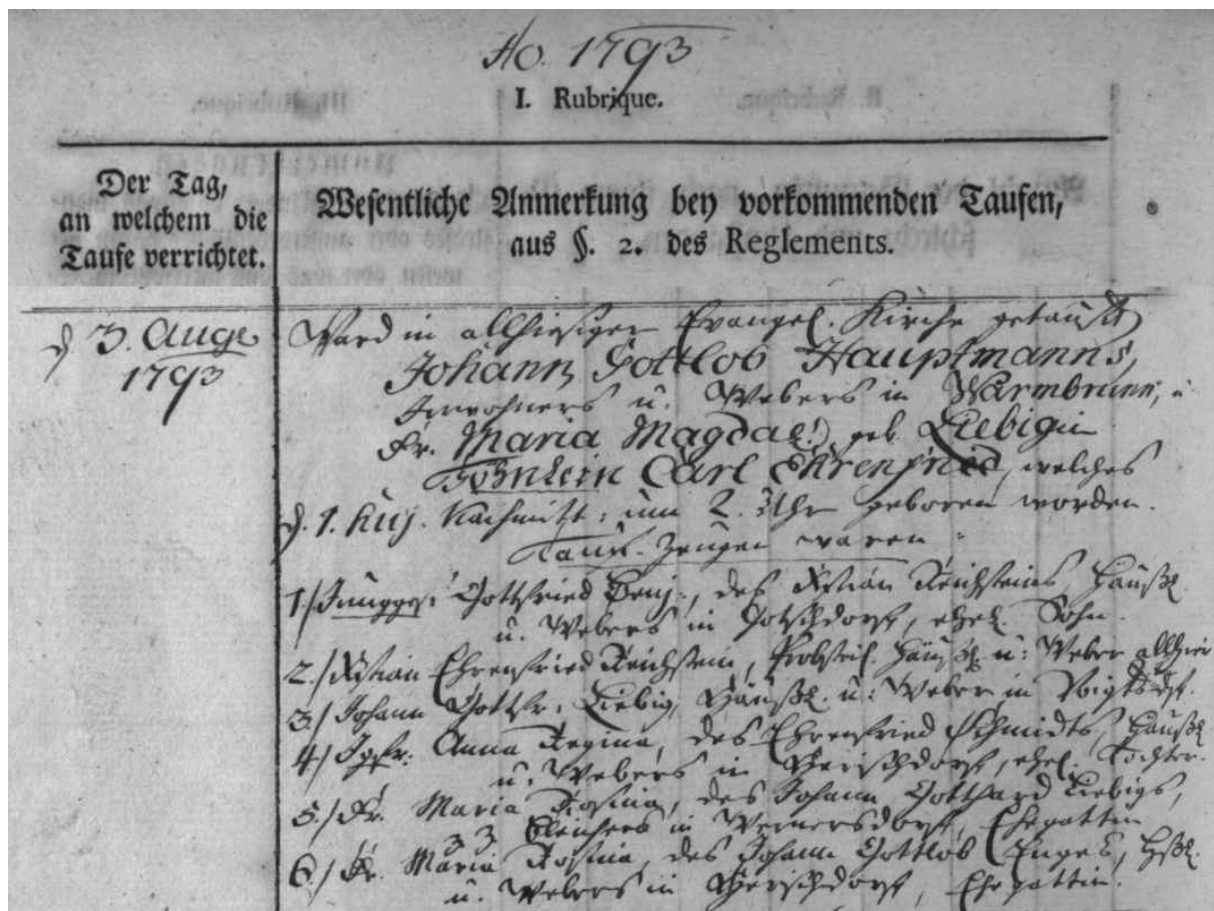 Ao. 1793
I. Rubrique.
Der Tag,
an welchem die
Taufe verrichtet.
Wesentliche Anmerkung bey vorkommenden Taufen,
aus §. 2. des Reglements.
d 3. Aug.
1793
Ward in allhiesiger Evangel. Kirche getauft
Johann Gottlob Hauptmanns,
Inwohners u. Webers in Warmbrunn, u
Fr. Maria Magdal: geb. Liebigin
Söhnlein Carl Ehrenfried, welches
d. 1. huj. Nachmitt: um 2. Uhr geboren worden.
Tauf-Zeugen waren:
1./ Junggs: Gottfried Benj:, des Xstian Reichsteins, Häußl.
u. Webers in Gotschdorf, ehel. Sohn.
2./ Xstian Ehrenfried Reichstein, Häußl. u: Weber allhier
3./ Johann Gottfr. Liebig, Häußl. u: Weber in Voigtsdf.
4./ Jgfr. Anna Regina, des Ehrenfried Schmidts, Häußl.
u. Webers in Herischdorf, ehel. Tochter.
5./ Fr. Maria Rosina, des Johann Gotthard Liebigs,
Bleichers in Wernersdorf, Ehegattin
6./ Fr. Maria Rosina, des Johann Gottlob Engels, Hßl.
u. Webers in Herischdorf, Ehegattin.